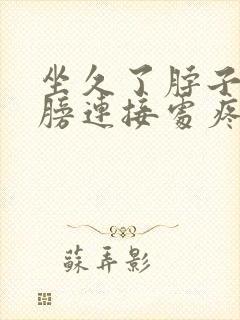 坐久了脖子
膀連接處疼
蘇弄影